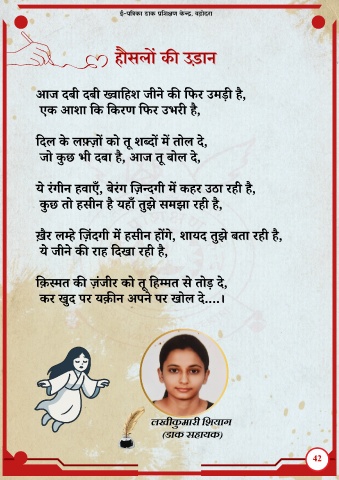 ई-पत्रिका डाक प्रशिक्षण केन्द्र, वड़ोदरा
हौसलों की उड़ान
आज दबी दबी ख्वाहिश जीने की फिर उमड़ी है,
एक आशा कि किरण फिर उभरी है,
दिल के लफ़्ज़ों को तू शब्दों में तोल दे,
जो कुछ भी दबा है, आज तू बोल दे,
ये रंगीन हवाएँ, बेरंग ज़िन्दगी में कहर उठा रही है,
कुछ तो हसीन है यहाँ तुझे समझा रही है,
ख़ैर लम्हे ज़िंदगी में हसीन होंगे, शायद तुझे बता रही है,
ये जीने की राह दिखा रही है,
क़िस्मत की ज़ंजीर को तू हिम्मत से तोड़ दे,
कर खुद पर यक़ीन अपने पर खोल दे....।
लखीकुमारी शियाग
(डाक सहायक)
42